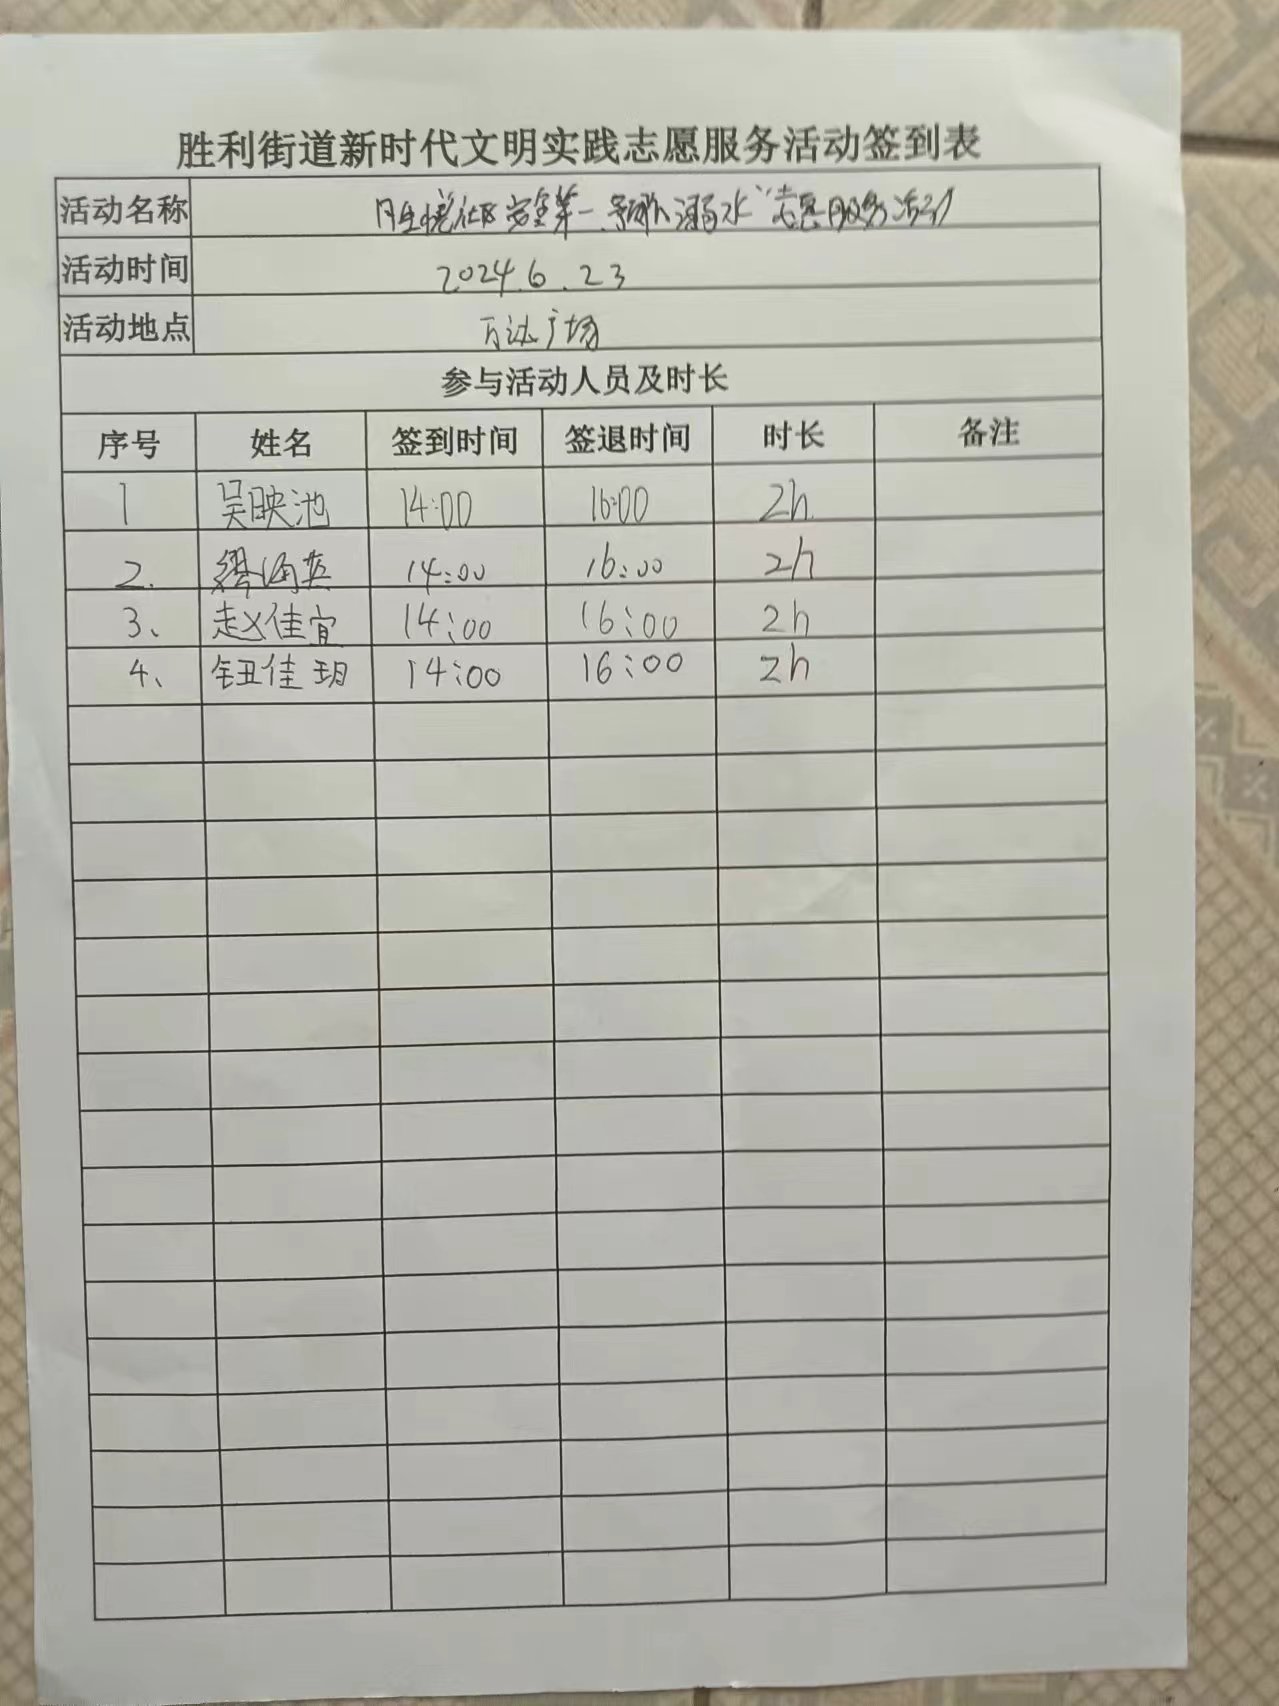 胜利街道新时代文明实践志愿服务活动签到表
活动名称 社区安全第一 预防溺水"志愿服务活动
活动时间 2024.6.23
活动地点 万达广场
参与活动人员及时长
序号 姓名 签到时间 签退时间 时长 备注
1 吴映池 14:00 16:00 2h
2. 缪海英 14:00 16:00 2h
3、 赵佳宜 14:00 16:00 2h
4、 钮佳玥 14:00 16:00 2h